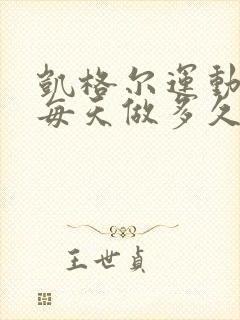 凱格尔運動
每天做多久
王世貞